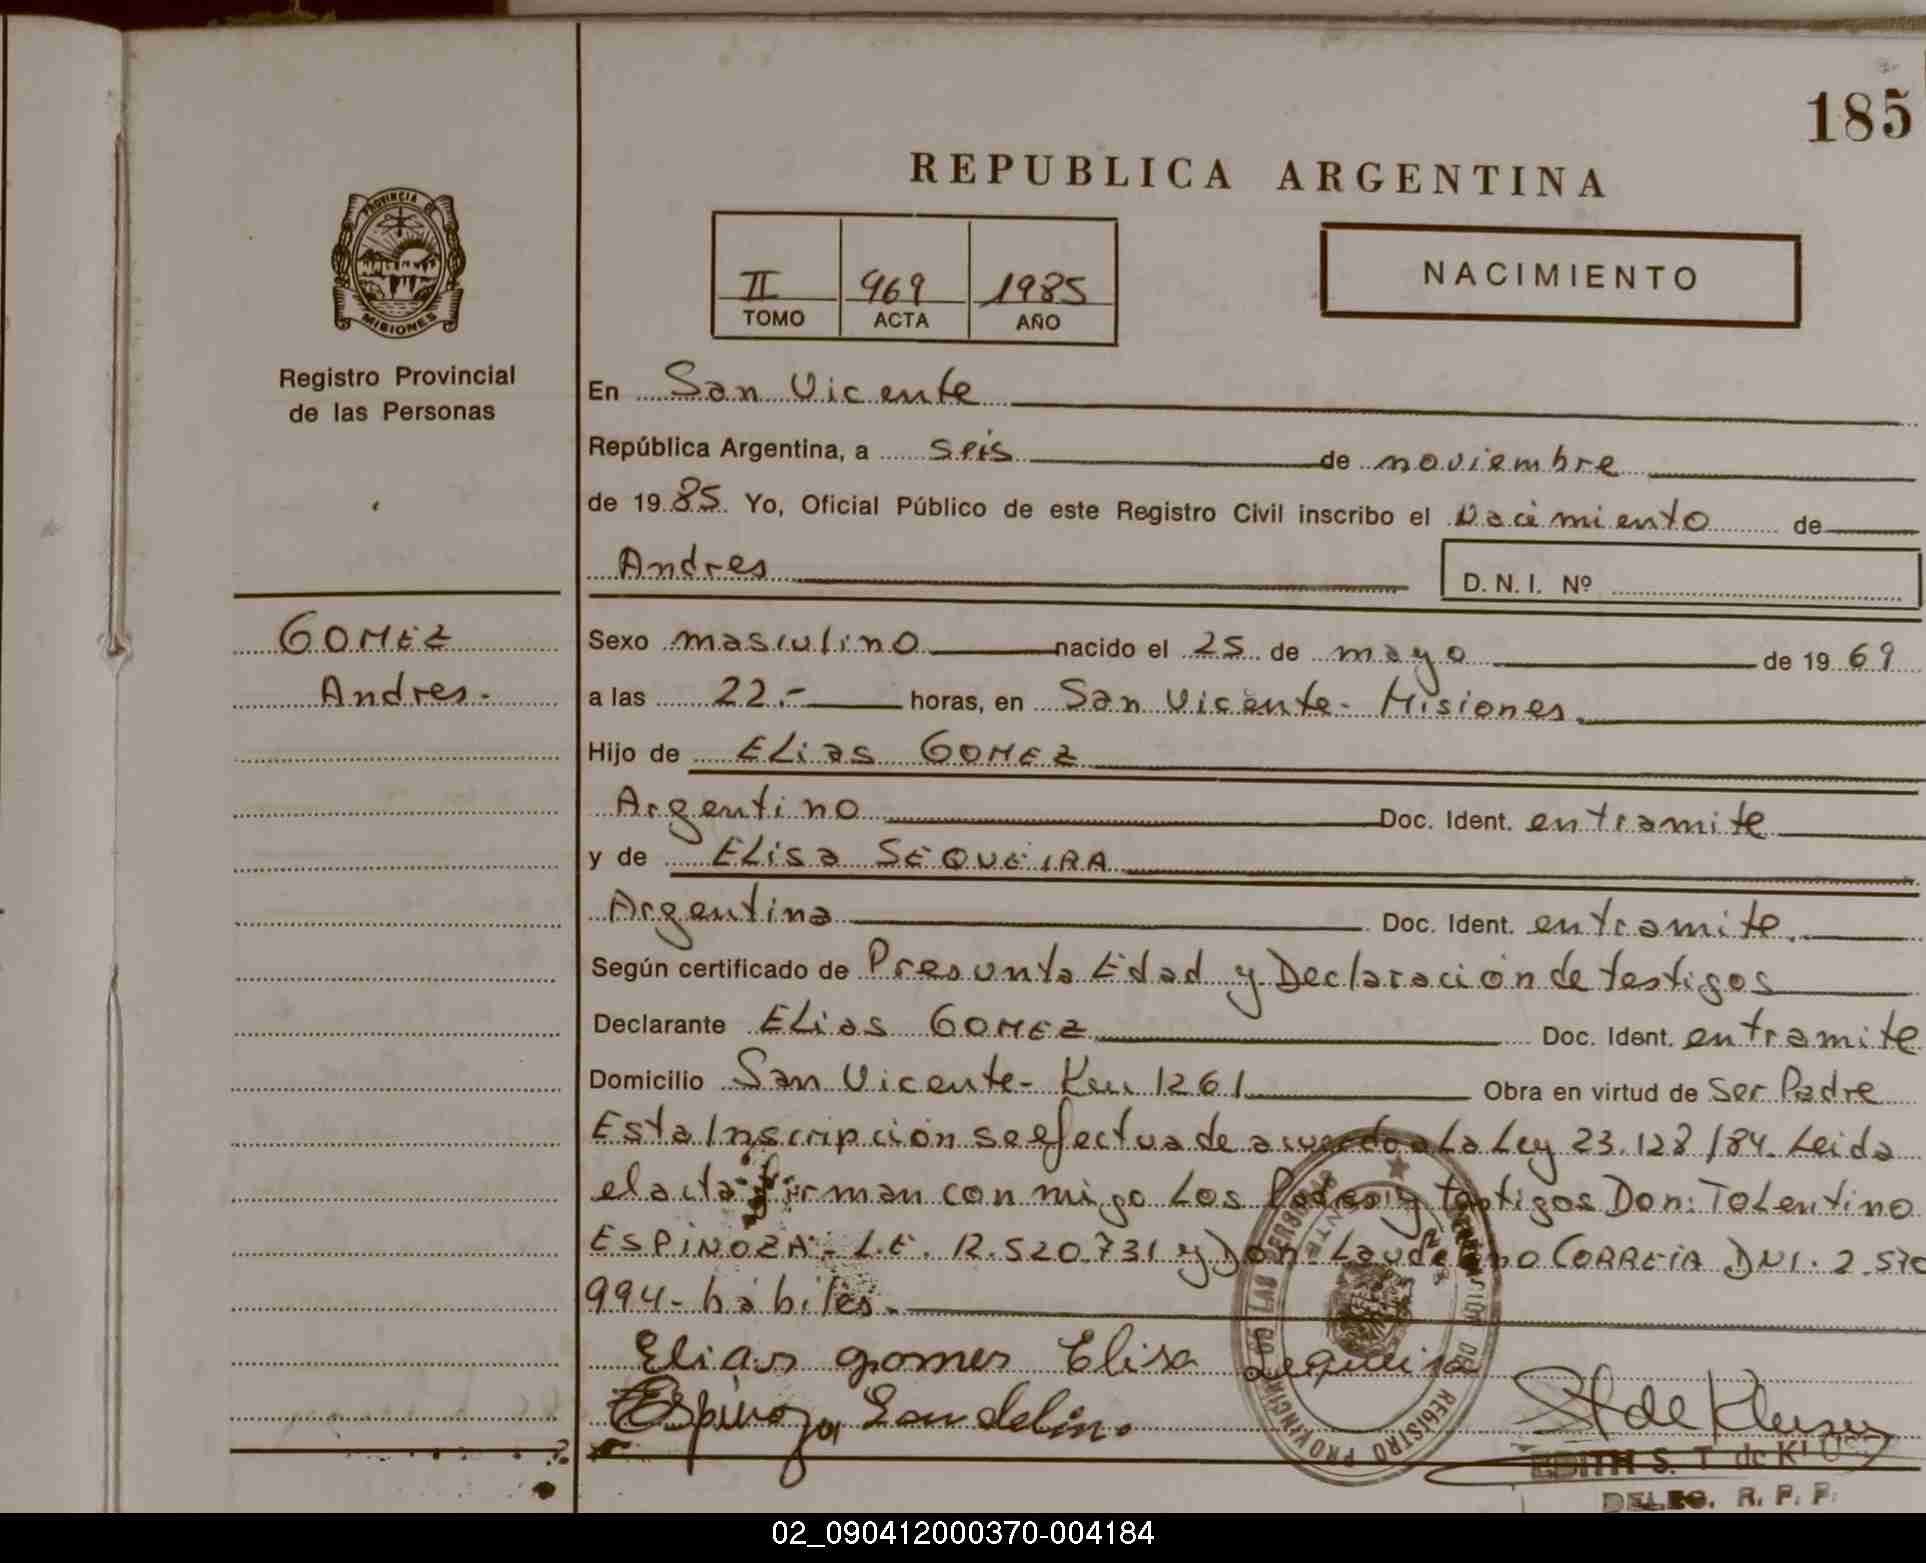 185
REPUBLICA ARGENTINA
PROVINCIA DE
MISIONES
Registro Provincial
de las Personas
II 969 1985
TOMO ACTA AÑO
NACIMIENTO
En San Vicente
República Argentina, a seis de noviembre
de 1985 Yo, Oficial Público de este Registro Civil inscribo el Nacimiento de
Andres D. N. I. Nº
GOMEZ
Andres.-
Sexo masculino nacido el 25 de mayo de 1969
a las 22.- horas, en San Vicente- Misiones.
Hijo de ELias GOMEZ
Argentino Doc. Ident. entramite
y de ELisa SEQUEIRA
Argentina Doc. Ident. entramite.
Según certificado de Presunta Edad y Declaración de testigos
Declarante ELias GOMEZ Doc. Ident. entramite
Domicilio San Vicente- Km 1261 Obra en virtud de Ser Padre
Esta Inscripción se efectua de acuerdo a La Ley 23.128/84. Leida
el acta firman con migo Los Padres y testigos Don: ToLentino
ESPINOZA- L.E. 12.520.731 y Don: Laudelino CORREIA DNI. 2.570
994- hábiles.
Elias gomes Elisa Sequeira
Espinoza Laudelin.
REGISTRO PROVINCIAL DE LAS PERSONAS
EDITH S. T. de KLUS
DELEG. R. P. P.
02_090412000370-004184